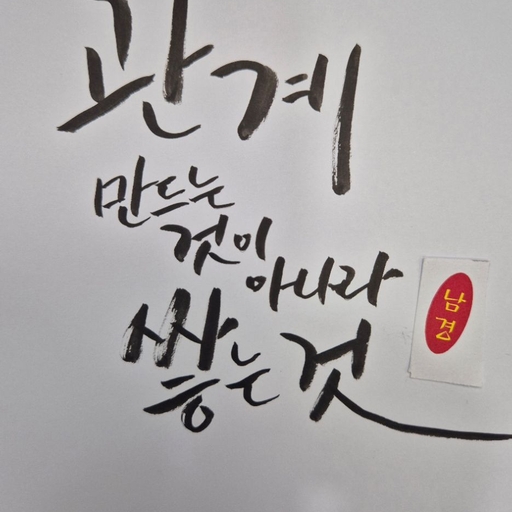 관계
만드는
것이
아니라
쌓는 것
남경